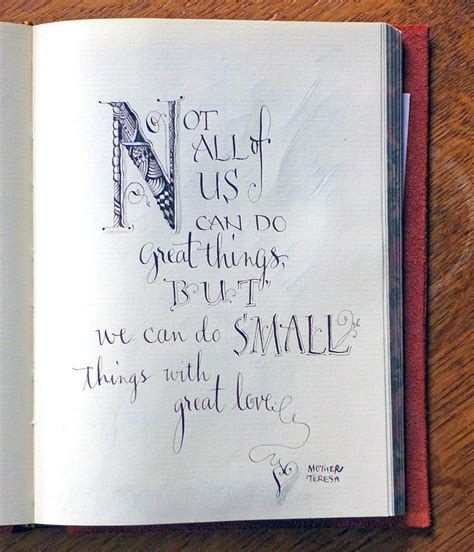 NOT
ALL of
US
CAN DO
Great things,
BUT
we can do SMALL
things with
great love
MOTHER
TERESA